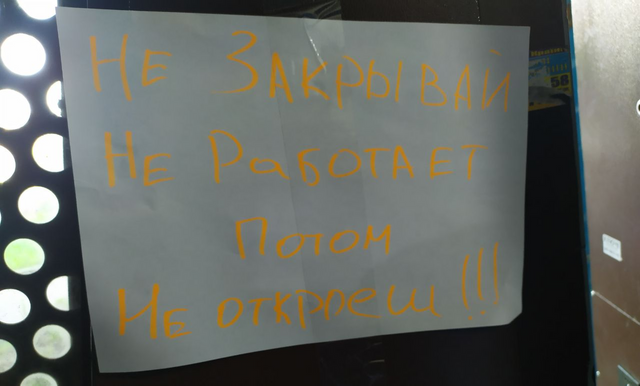 Не Закрывай
Не Работает
Потом
Не откроеш!!!
58